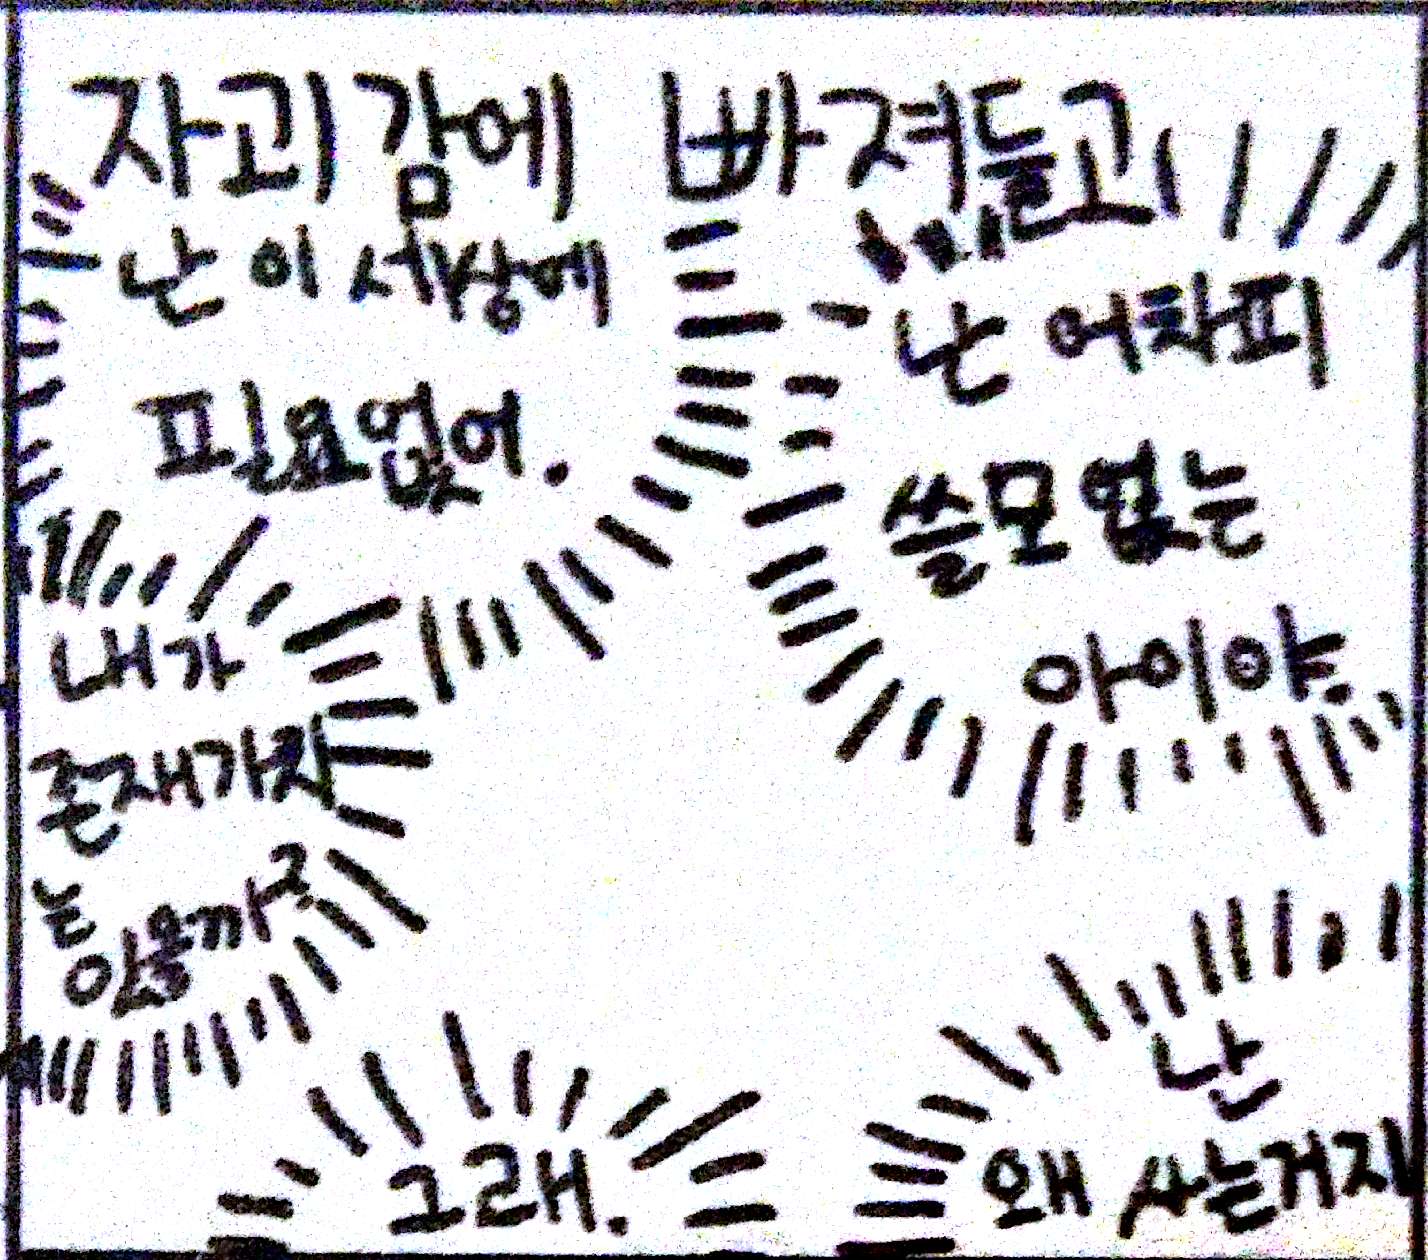 자괴감에 빠져들고
난 이 세상에
필요없어.
난 어차피
쓸모없는
아이야.
내가
존재가치
는
있을까?
그래.
난
왜 사는거지